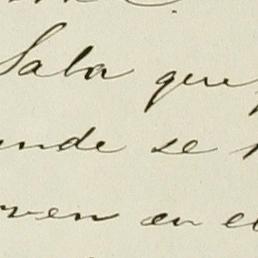 Sala que
nde se
rven en el